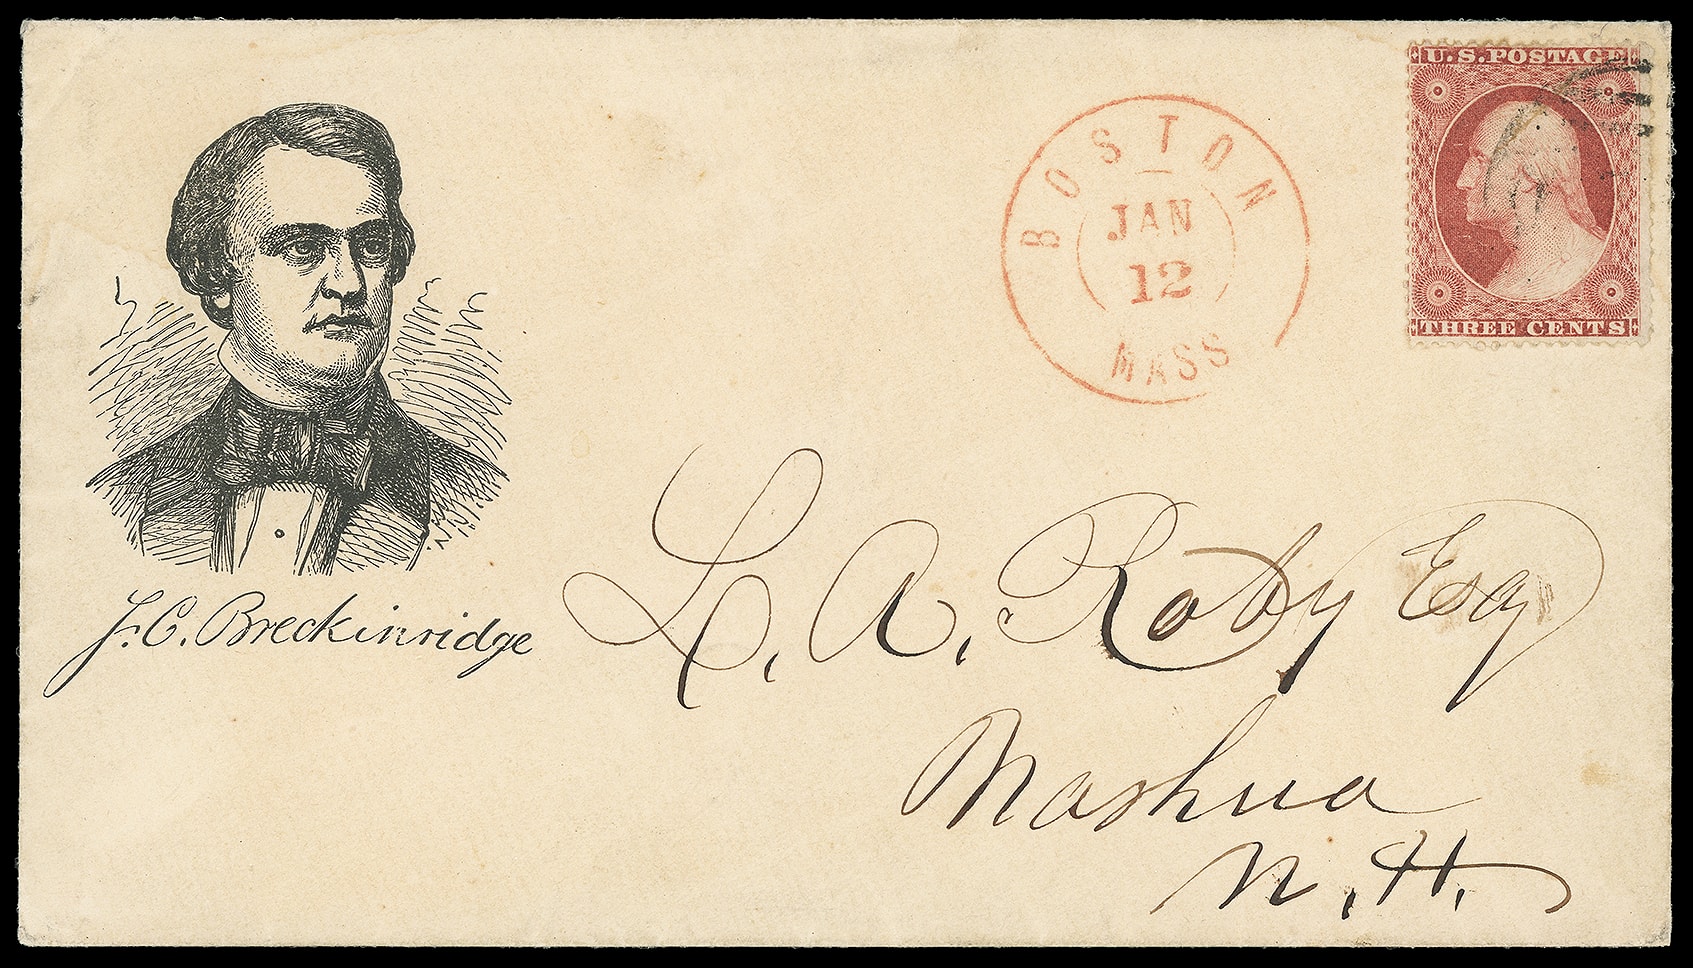 U.S. POSTAGE
THREE CENTS
BOSTON
JAN
12
MASS
J. C. Breckinridge
L. A. Roby Esq
Nashua
N. H.